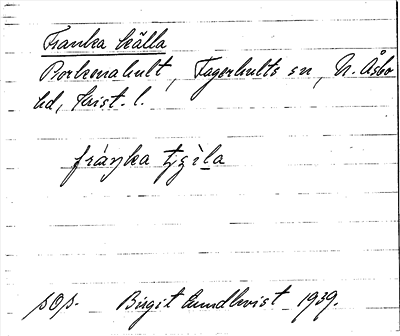 Franka källa
Borkenahult, Fagerhults sn, N. Åsbo
hd, Krist. l.
fráŋka tɟɕèla
sOp. Birgit Sundkvist 1939.